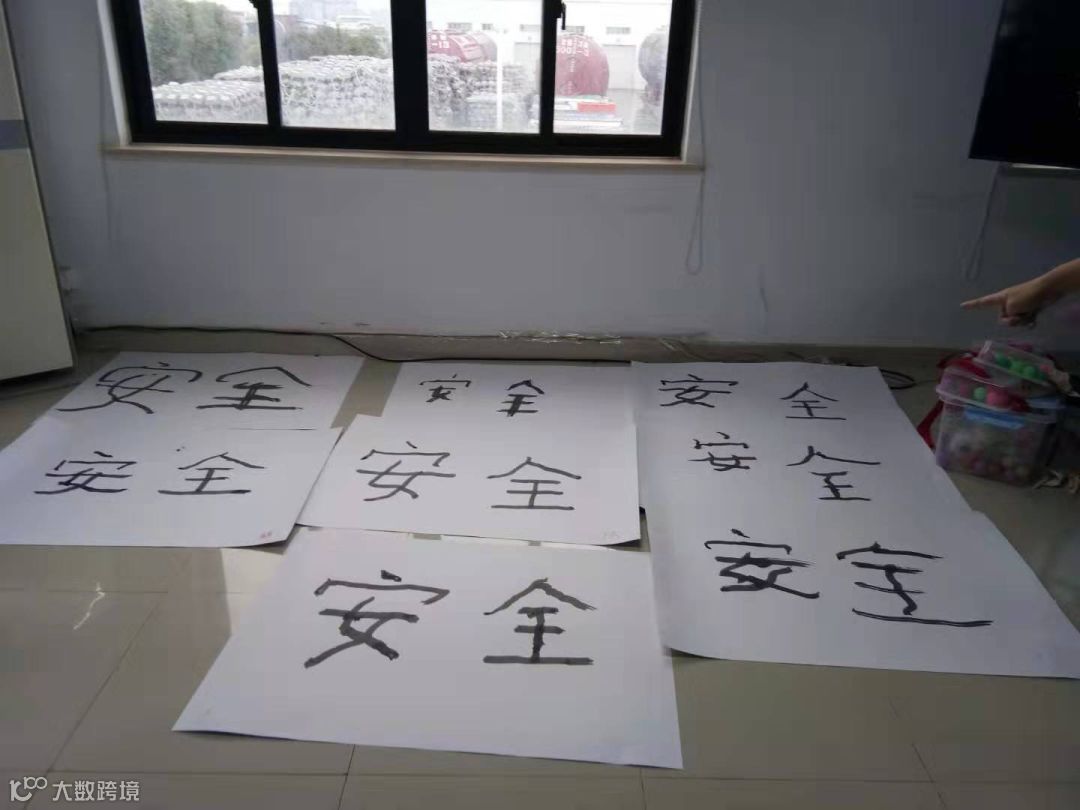 安全
安全
安全
安全
安全
安全
安全
安全
安全
大数跨境